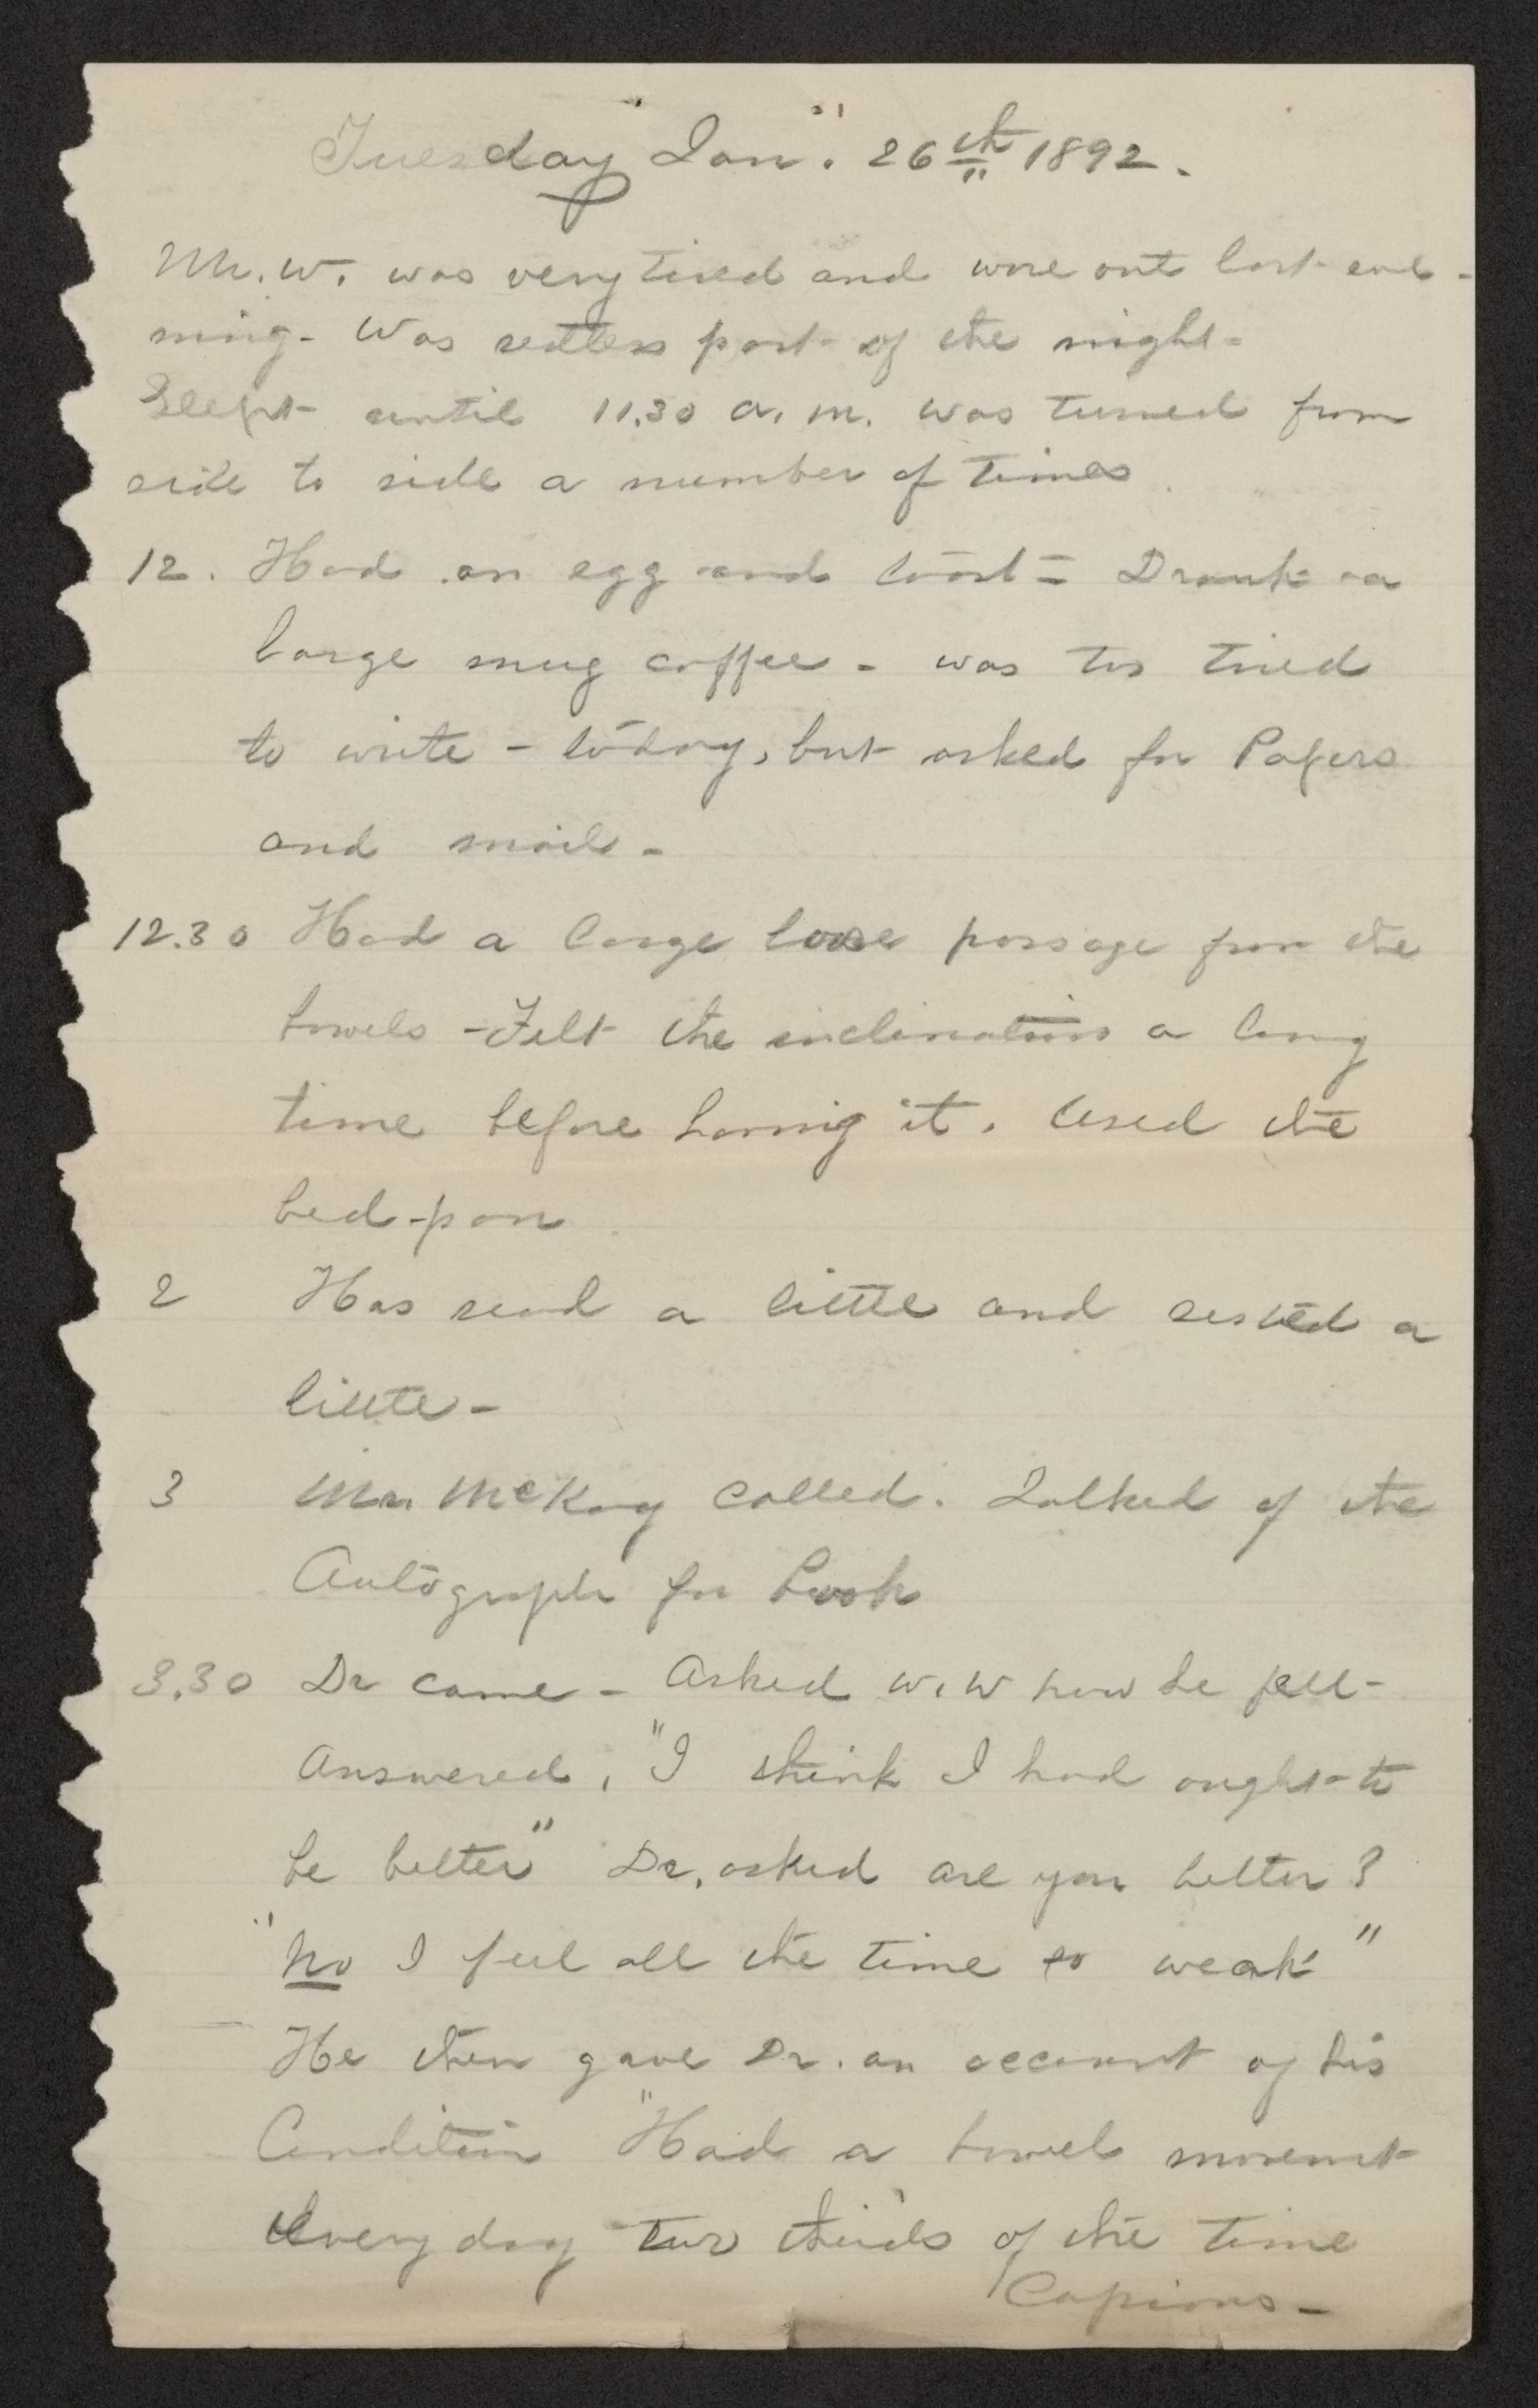 Tuesday Jan. 26th 1892.
Mr. W. was very tired and wore out last eve-
ning - Was restless part of the night -
Slept until 11.30 a. m. was turned from
side to side a number of times
12. Had an egg and toast - Drank a
large mug coffee - was too tired
to write - today, but asked for Papers
and mail -
12.30 Had a large loose passage from the
bowels - Felt the inclination a long
time before having it. Used the
bed-pan
2 Has read a little and rested a
little -
3 Mr. McKay called. Talked of the
Autograph for book
3.30 Dr came - Asked W. W how he felt -
Answered, "I think I had ought to
be better" Dr. asked are you better?
"No I feel all the time so weak"
He then gave Dr. an account of his
Condition "Had a bowel movemt
Every day two thirds of the time
Copious -